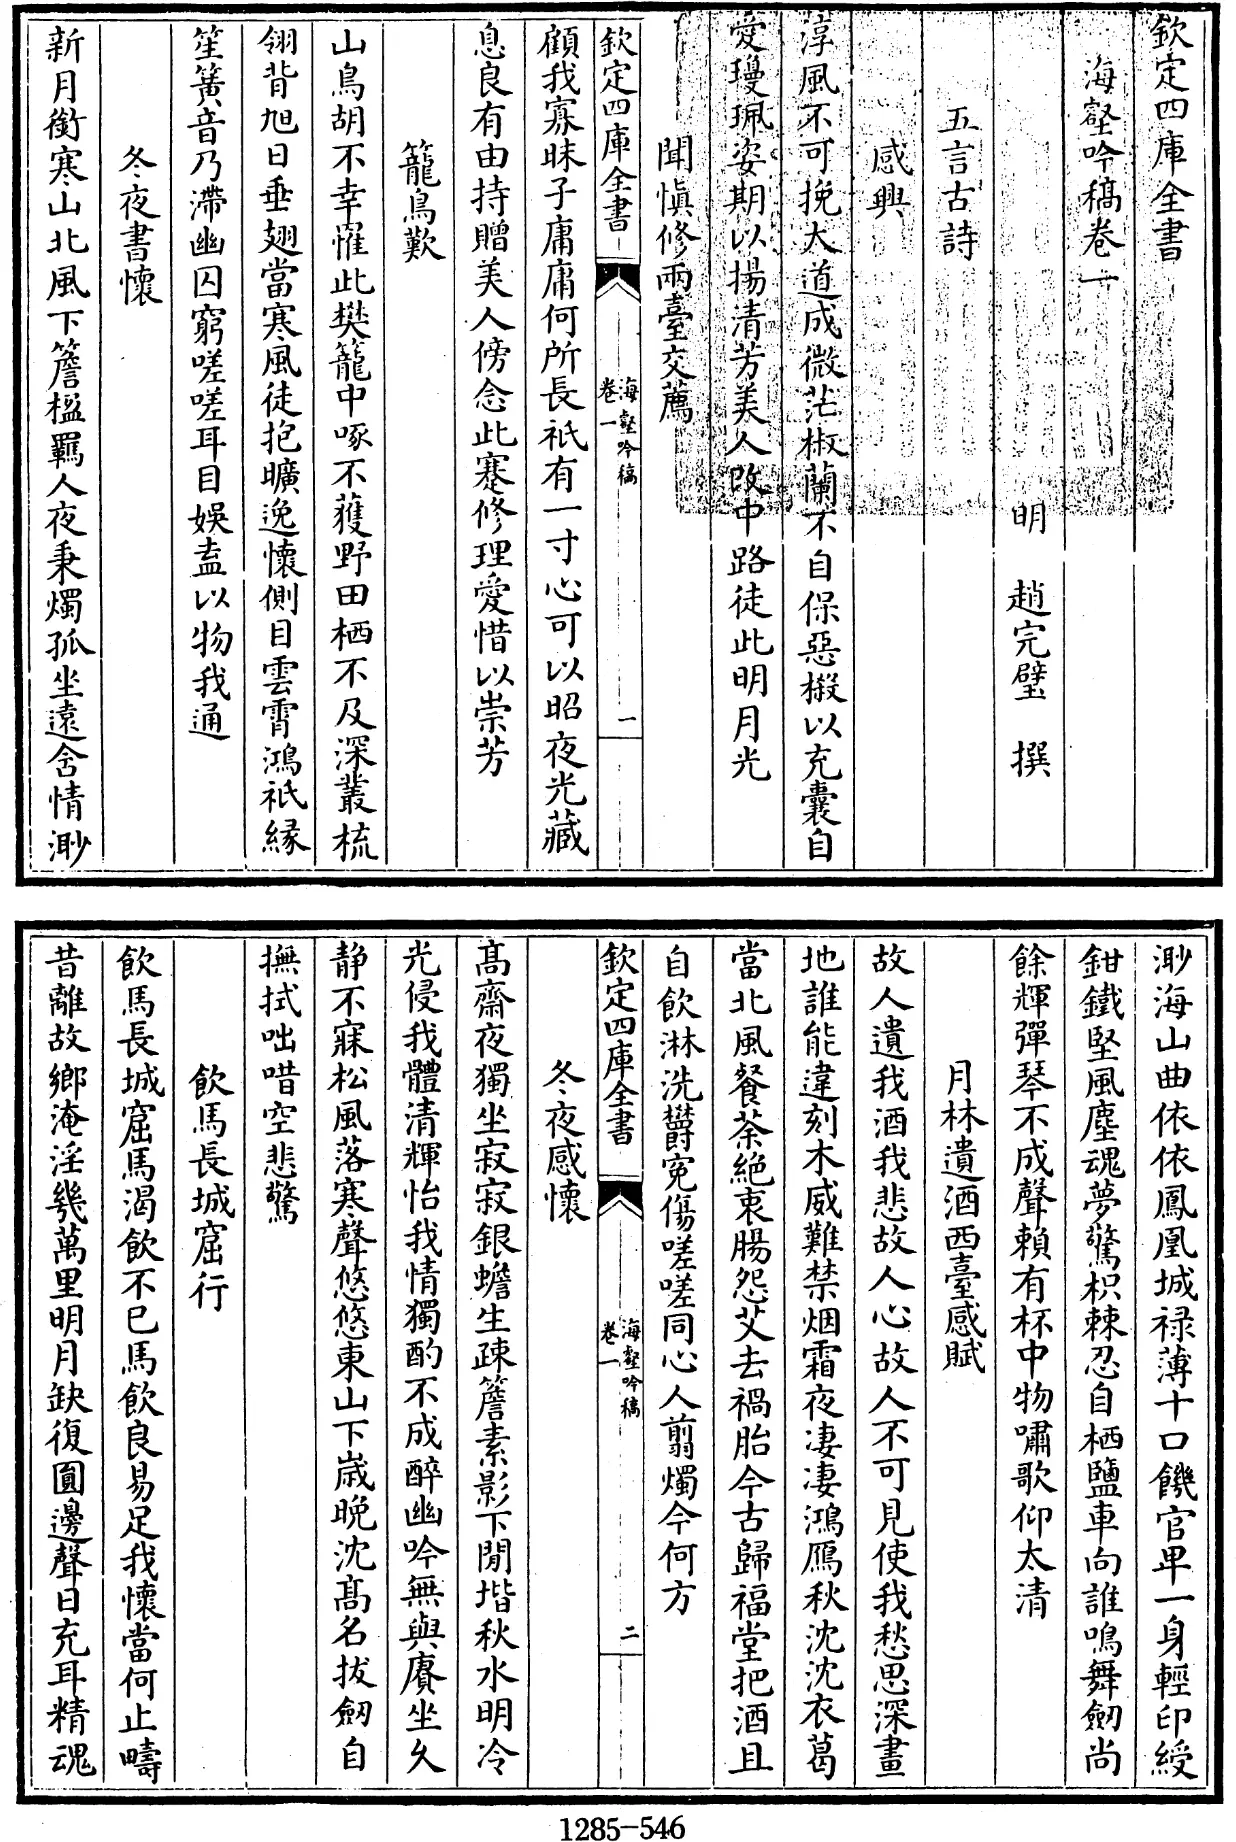 欽定四庫全書
海壑吟稿卷一
明 趙完璧 撰
五言古詩
感興
淳風不可挽大道成微茫椒蘭不自保惡樧以充囊自
愛瓊珮姿期以揚清芳美人改中路徒此明月光
聞愼修兩臺交薦
欽定四庫全書
海壑吟稿
卷一
一
顧我寡昧子庸庸何所長祇有一寸心可以昭夜光藏
息良有由持贈美人傍念此蹇修理愛惜以崇芳
籠鳥歎
山鳥胡不幸罹此樊籠中啄不獲野田栖不及深叢梳
翎背旭日垂翅當寒風徒抱曠逸懷側目雲霄鴻祇緣
笙簧音乃滯幽囚窮嗟嗟耳目娛盍以物我通
冬夜書懷
新月銜寒山北風下簷楹羈人夜秉燭孤坐遠舍情渺
渺海山曲依依鳳凰城祿薄十口饑官卑一身輕印綬
鉗鐵堅風塵魂夢驚枳棘忍自栖鹽車向誰鳴舞劒尚
餘輝彈琴不成聲賴有杯中物嘯歌仰太清
月林遺酒西臺感賦
故人遺我酒我悲故人心故人不可見使我愁思深畫
地誰能違刻木威難禁烟霜夜凄凄鴻鴈秋沈沈衣葛
當北風餐荼絶衷腸怨艾去禍胎今古歸福堂把酒且
自飲淋洗欝寃傷嗟嗟同心人翦燭今何方
冬夜感懷
欽定四庫全書
海壑吟稿
卷一
二
髙齋夜獨坐寂寂銀蟾生疎簷素影下閒堦秋水明冷
光侵我體清輝怡我情獨酌不成醉幽吟無與賡坐久
静不寐松風落寒聲悠悠東山下歳晩沈髙名拔劒自
撫拭咄唶空悲驚
飲馬長城窟行
飲馬長城窟馬渴飲不已馬飲良易足我懷當何止疇
昔離故鄉淹淫幾萬里明月缺復圓邊聲日充耳精魂
1285-546